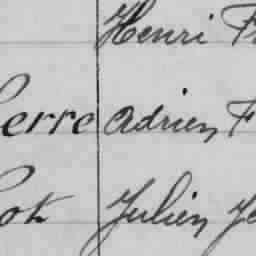 Henri F
erre Adrien F
Julien Je